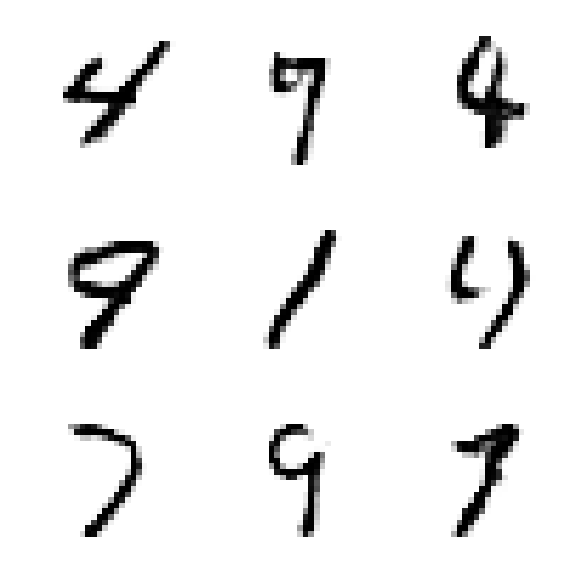 4 4
9 1 4
7 9 7